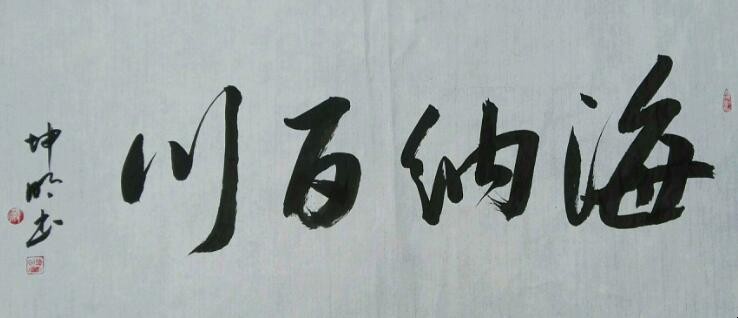 海纳百川
坤明书